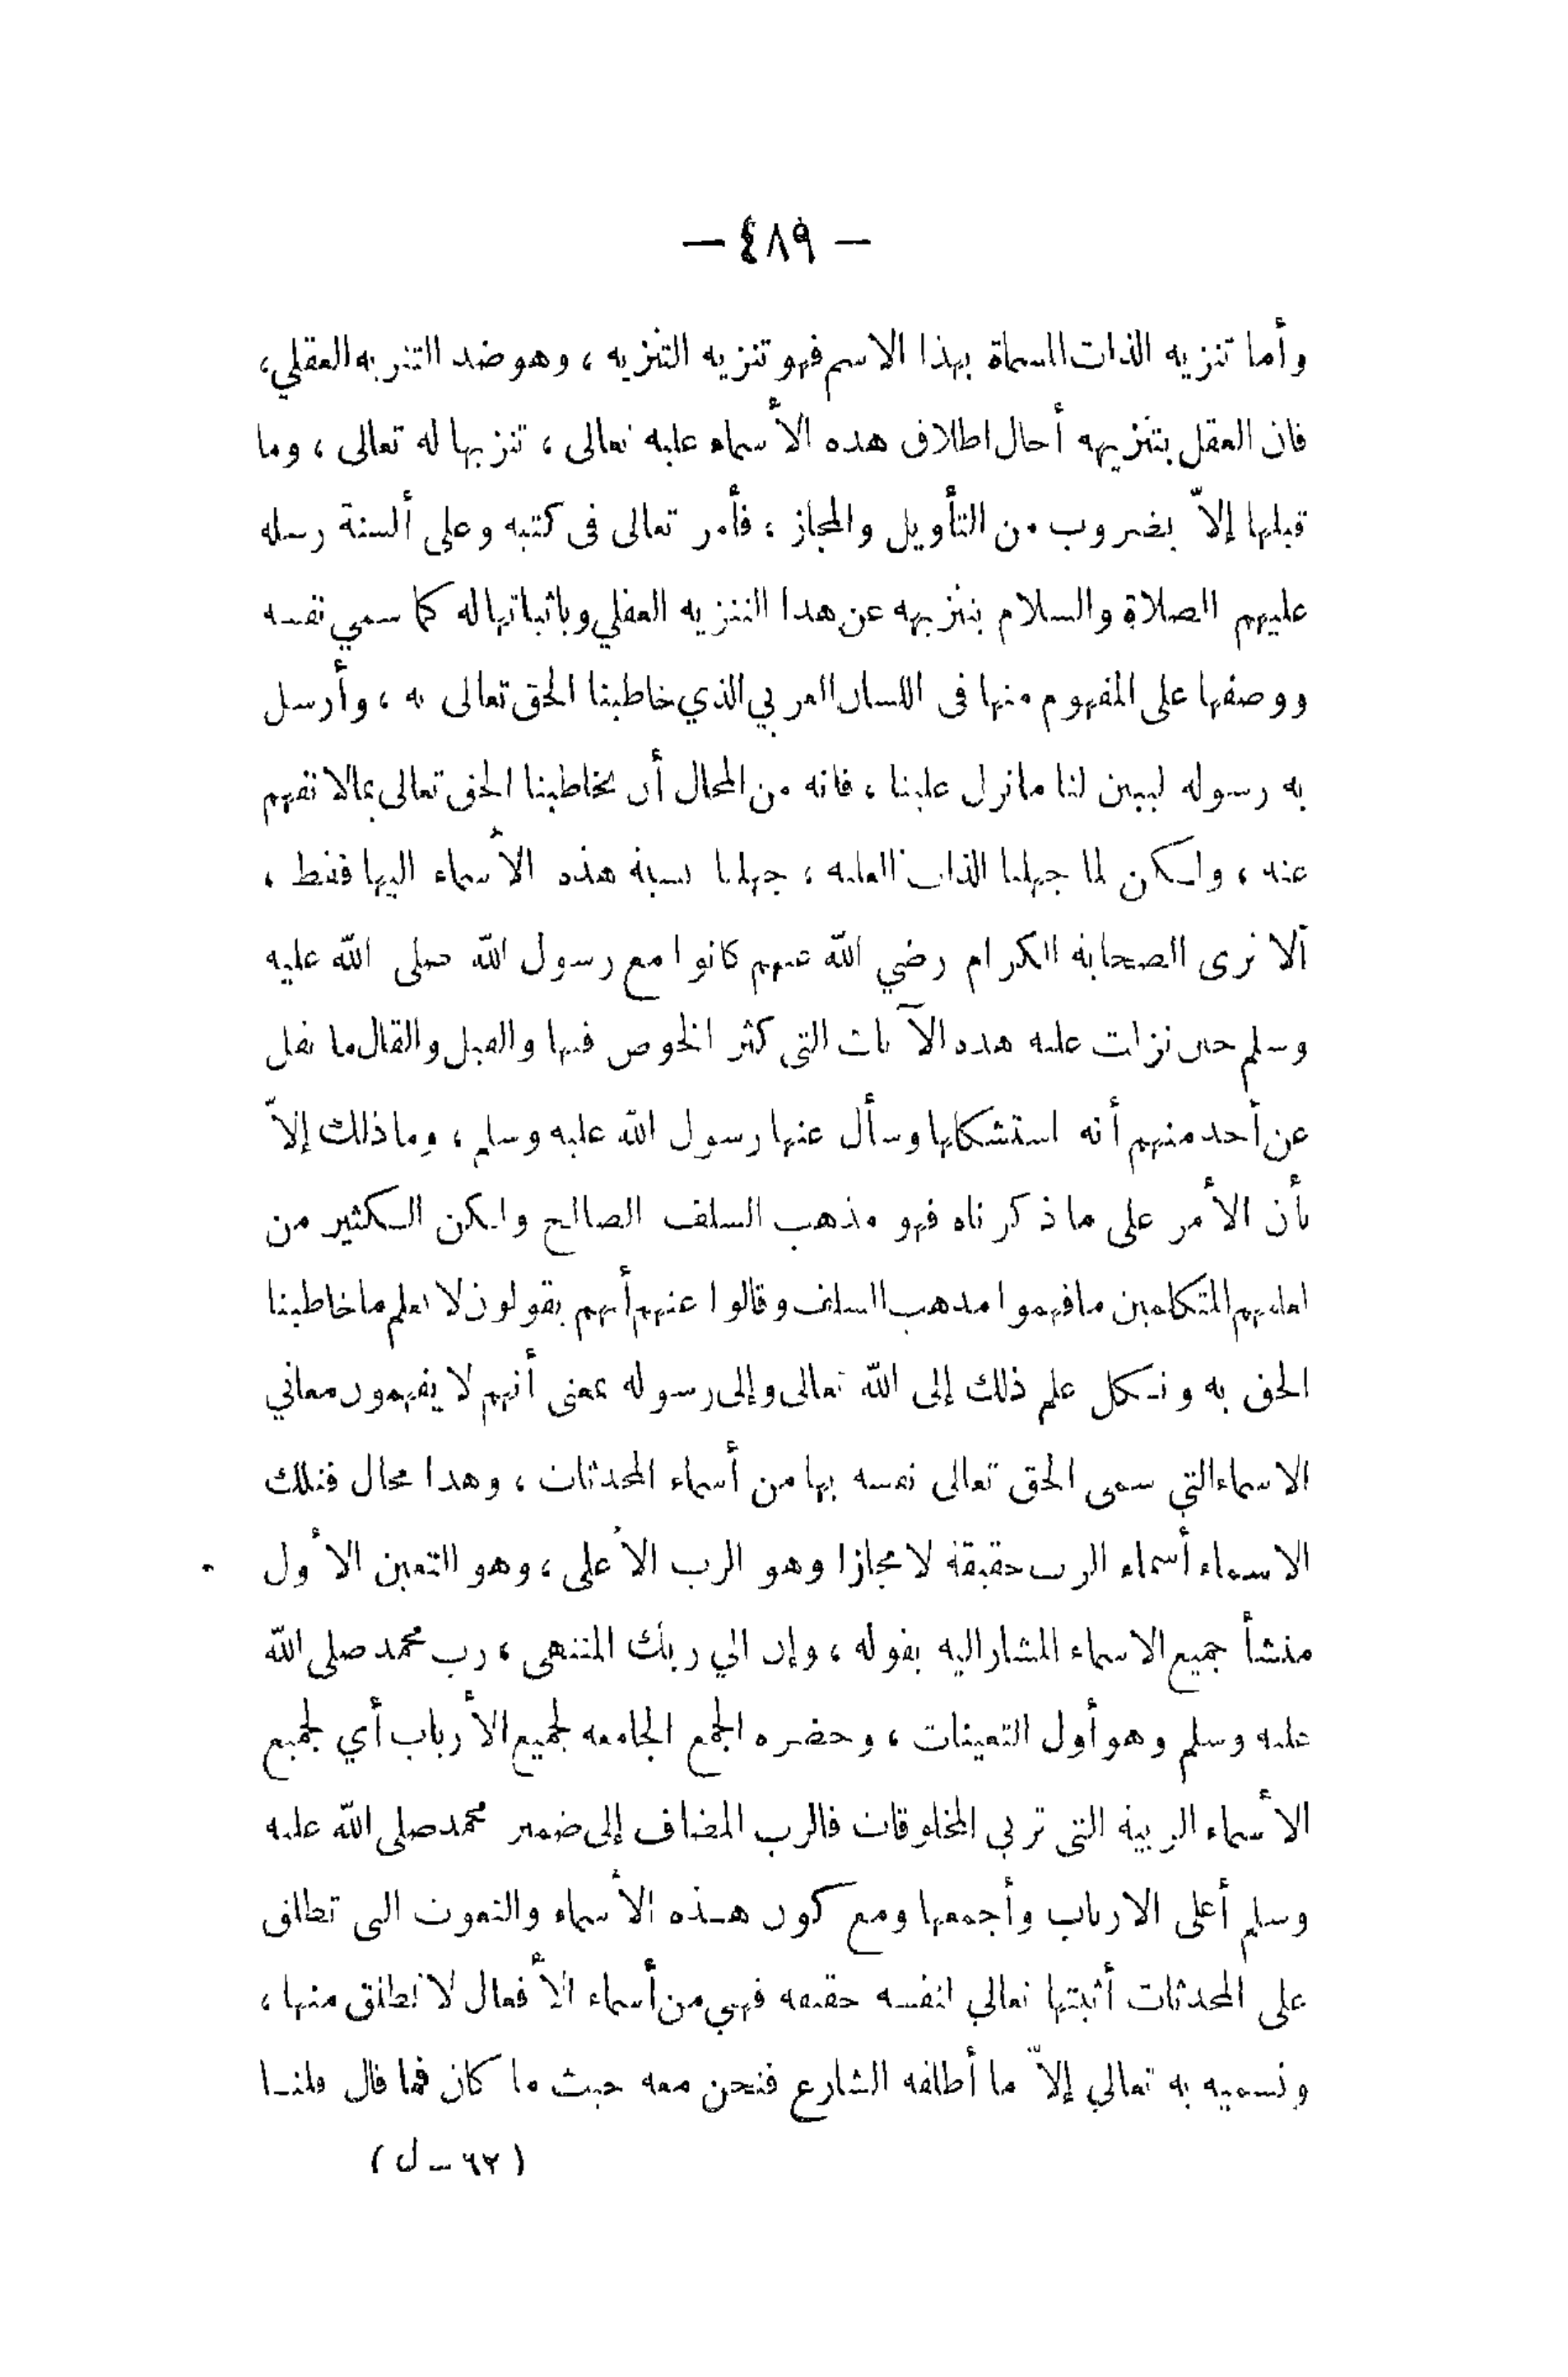 — ٤٨٩ —
وأما تنزيه الذات المسماة بهذا الاسم فهو تنزيه التنزيه ، وهو ضد التنزيه العقلي ،
فان العقل بتنزيهه أحال اطلاق هذه الأسماء عليه تعالى ، تنزيها له تعالى ، وما
قبلها إلاّ بضروب من التأويل والمجاز ، فأمر تعالى فى كتبه وعلى ألسنة رسله
عليهم الصلاة والسلام بتنزيهه عن هذا التنزيه العقلي وباثباتها له كما سمي نفسه
ووصفها على المفهوم منها فى اللسان العربي الذي خاطبنا الحق تعالى به ، وأرسل
به رسوله ليبين لنا مانزل علينا ، فانه من المحال أن يخاطبنا الحق تعالى بمالا نفهم
عنه ، ولكن لما جهلنا الذات العليه ، جهلنا نسبة هذه الأسماء اليها فقط ،
ألا ترى الصحابة الكرام رضي الله عنهم كانوا مع رسول الله صلى الله عليه
وسلم حين نزلت عليه هذه الآيات التى كثر الخوض فيها والقيل والقال ما نقل
عن أحد منهم أنه استشكلها وسأل عنها رسول الله عليه وسلم ، وما ذلك إلاّ
بأن الأمر على ما ذكرناه فهو مذهب السلف الصالح ولكن الكثير من
المتكلمين مافهموا مذهب السلف وقالوا عنهم أنهم يقولون لا نعلم ما خاطبنا
الحق به ونكل علم ذلك إلى الله تعالى وإلى رسوله بمعنى أنهم لا يفهمون معاني
الاسماء التي سمى الحق تعالى نفسه بها من أسماء المحدثات ، وهذا محال فتلك
الاسماء أسماء الرب حقيقة لا مجازا وهو الرب الأعلى ، وهو التعين الأول
منشأ جميع الاسماء المشار اليه بقوله ، وإن الي ربك المنتهى ، رب محمد صلى الله
عليه وسلم وهو أول التعينات ، وحضره الجمع الجامعه لجميع الأرباب أي لجميع
الأسماء الربية التى تربي المخلوقات فالرب المضاف إلى ضمير محمد صلى الله عليه
وسلم أعلى الارباب وأجمعها ومع كون هذه الأسماء والنعوت التى تطلق
على المحدثات أثبتها تعالي لنفسه حقيقه فهي من أسماء الأفعال لا نطلق منها ،
ونسميه به تعالي إلاّ ما أطلقه الشارع فنحن معه حيث ما كان فما قال قلنا
( ٦٢ – ل )